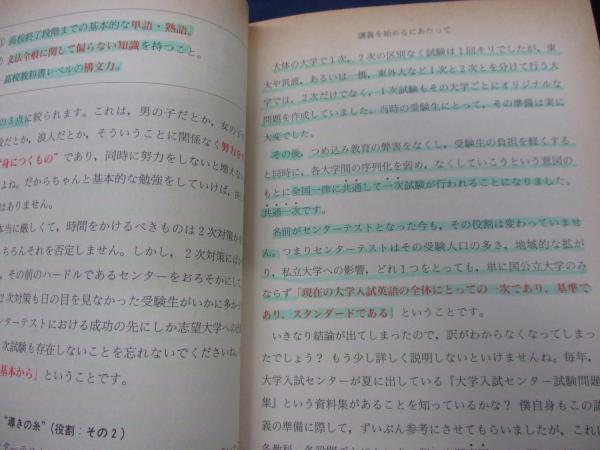 ① 高校終了段階までの基本的な単語・熟語。
② 文法全般に関して偏らない知識を持つこと。
高校教科書レベルの構文力。
の3点に絞られます。これは，男の子だとか，女の子
だとか，浪人だとか，そういうことに関係なく努力を
身につくもの”であり，同時に努力をしないと増えな
よね。だからちゃんと基本的な勉強をしていけば，
はありません。
本当に厳しくて，時間をかけるべきものは2次対策
ちろんそれを否定しません。しかし，2次対策に
，その前のハードルであるセンターをおろそかにし
2次対策も日の目を見なかった受験生がいかに多か
ンターテストにおける成功の先にしか志望大学への
次試験も存在しないことを忘れないでくださいね
基本から」ということです。
“導きの糸”（役割：その2）
ンターテス
講義を始めるにあたって
大体の大学で1次，2次の区別なく試験は1回キリでしたが，東
大や筑波，あるいは一橋，東外大など1次と2次とを分けて行う大
学では，2次だけでなく，1次試験もその大学ごとにオリジナルな
問題を作成していました。当時の受験生にとって，その準備は実に
大変でした。
その後，つめ込み教育の弊害をなくし，受験生の負担を軽くする
と同時に，各大学間の序列化を弱め，なくしていこうという意図の
もとに全国一律に共通して一次試験が行われることになりました。
共通一次です。
名前がセンターテストとなった今も，その役割は変わっていませ
ん。つまりセンターテストはその受験人口の多さ，地域的な拡が
り，私立大学への影響，どれ1つをとっても，単に国公立大学のみ
ならず「現在の大学入試英語の全体にとっての一次であり，基準で
あり，スタンダードである」ということです。
いきなり結論が出てしまったので，訳がわからなくなってしまっ
たでしょう？ もう少し詳しく説明しないといけませんね。毎年，
大学入試センターが夏に出している『大学入試センター試験問題
集』という資料集があることを知っているかな？ 僕自身もこの講
義の準備に際して，ずいぶん参考にさせてもらいましたが，これに